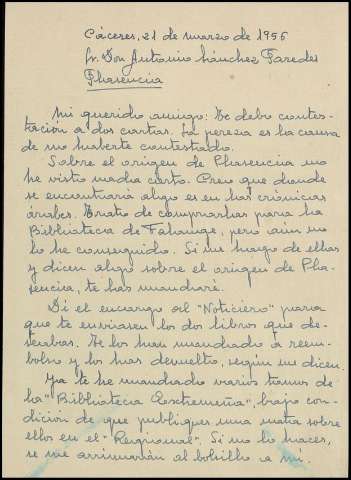 Cáceres, 21 de marzo de 1956
Sr. Don Antonio Sánchez Paredes
Plasencia
Mi querido amigo: Te debo contes-
tación a dos cartas. La pereza es la causa
de no haberte contestado.
Sobre el origen de Plasencia no
he visto nada cierto. Creo que donde
se encontraría algo es en las crónicas
árabes. Trato de comprarlas para la
Biblioteca de Falange, pero aún no
lo he conseguido. Si me hago de ellas
y dicen algo sobre el origen de Pla-
sencia, te las mandaré.
Di el encargo al "Noticiero" para
que te enviasen los dos libros que de-
seabas. Te los han mandado a reem-
bolso y los has devuelto, según me dicen.
Ya te he mandado varios tomos de
la "Biblioteca Extremeña", bajo con-
dición de que publiques una nota sobre
ellos en el "Regional". Si no lo haces,
se me arruinarán el bolsillo a mí.